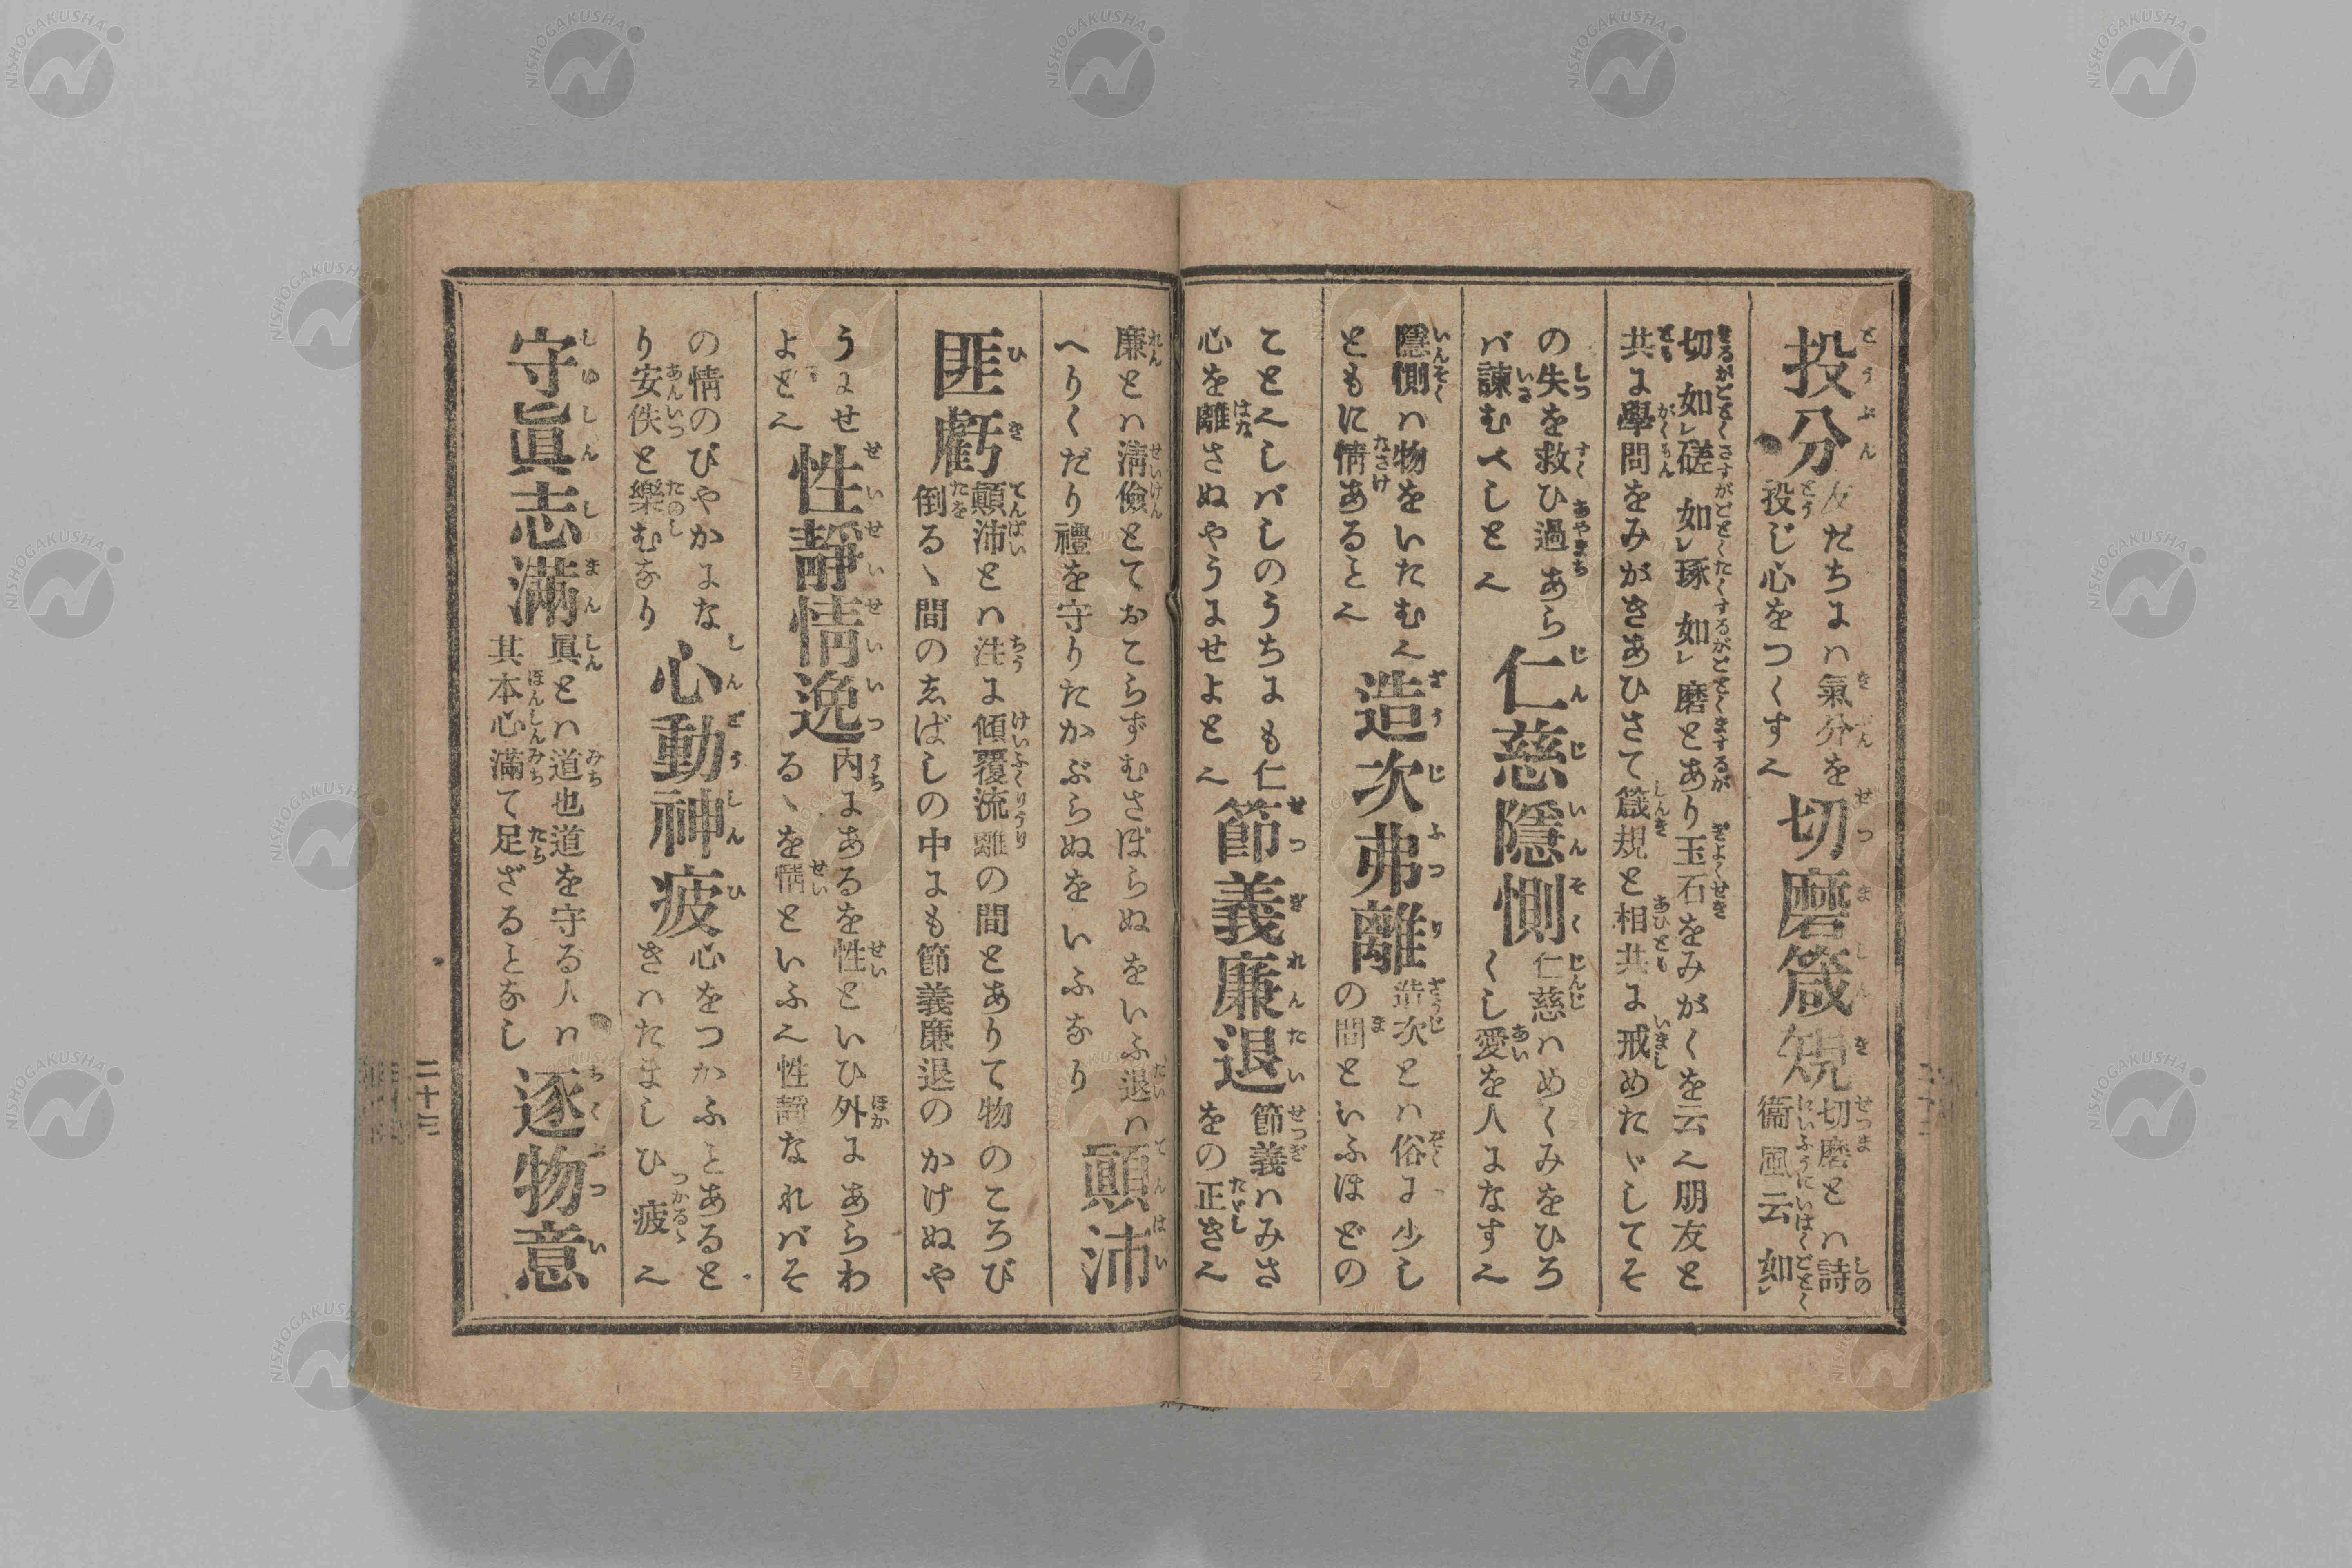 投分
友だちにハ氣分を
投じ心をつくす也
切磨箴規
切磨とハ詩
衞風云如レ
切如レ磋如レ琢如レ磨とあり玉石をみがくを云也朋友と
共に學問をみがきあひさて箴規と相共に戒めたゞしてそ
の失を救ひ過あら
バ諫むべしと也
仁慈隱惻
仁慈ハめくみをひろ
くし愛を人になす也
隱惻ハ物をいたむ也
ともに情あると也
造次弗離
造次とハ俗に少し
の間といふほどの
こと也しバしのうちにも仁
心を離さぬやうにせよと也
節義廉退
節義ハみさ
をの正き也
廉とハ淸儉とておこらずむさぼらぬをいふ退ハ
へりくだり禮を守りたかぶらぬをいふなり
顚沛
匪虧
顚沛とハ注に傾覆流離の間とありて物のころび
倒るゝ間の志ばしの中にも節義廉退のかけぬや
うにせ
よと也
性靜情逸
内にあるを性といひ外にあらわ
るゝを情といふ也性靜なれバそ
の情のびやかにな
り安佚と樂むなり
心動神疲
心をつかふことあると
きハたましひ疲也
守眞志滿
眞とハ道也道を守る人ハ
其本心滿て足ざることなし
逐物意
二十三